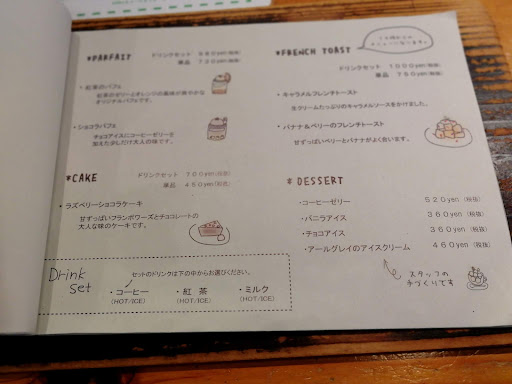 *PARFAIT
ドリンクセット
単品 720yen(税抜)
・紅茶のパフェ
紅茶のゼリーとオレンジの風味が爽やかな
オリジナルパフェです。
・ショコラパフェ
チョコアイスにコーヒーゼリーを
加えた少しだけ大人の味です。
*CAKE
ドリンクセット 700yen(税抜)
単品 450yen(税抜)
・ラズベリーショコラケーキ
甘ずっぱいフランボワーズとチョコレートの
大人な味のケーキです。
Drink Set
セットのドリンクは下の中からお選びください。
・コーヒー ・紅茶 ・ミルク
(HOT/ICE) (HOT/ICE) (HOT/ICE)
*FRENCH TOAST
メニューになります。
ドリンクセット 1000yen(税抜)
単品 750yen(税抜)
・キャラメルフレンチトースト
生クリームたっぷりのキャラメルソースをかけました。
・バナナ&ベリーのフレンチトースト
甘ずっぱいベリーとバナナがよく合います。
* DESSERT
・コーヒーゼリー 520yen (税抜)
・バニラアイス 360yen (税抜)
・チョコアイス 360yen (税抜)
・アールグレイのアイスクリーム 460yen (税抜)
スタッフの
手づくりです